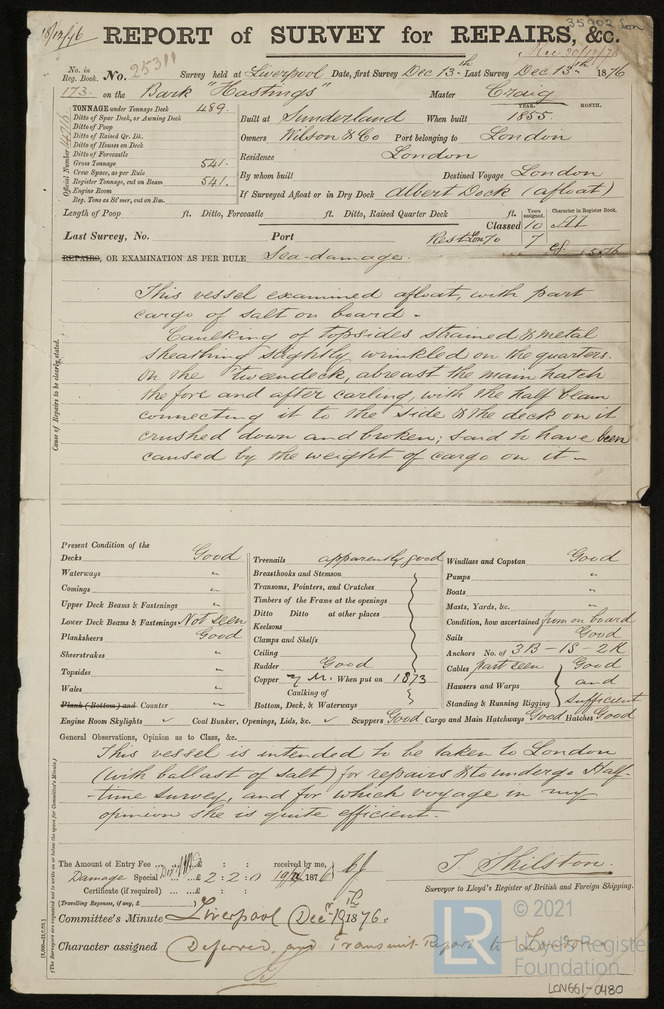 18/12/76
35902 Lon
REPORT of SURVEY for REPAIRS, &c.
Rec. 20/12/76
No. in Reg. Book. No. 25311 Survey held at Liverpool Date, first Survey Dec 13th Last Survey Dec 13th 1876
173. on the Bark "Hastings" Master Craig
TONNAGE under Tonnage Deck 489.
Ditto of Spar Deck, or Awning Deck
Ditto of Poop
Ditto of Raised Qr. Dk.
Ditto of Houses on Deck
Ditto of Forecastle
Gross Tonnage 541.
Crew Space, as per Rule
Register Tonnage, cut on Beam 541.
Engine Room
Reg. Tons as St'mer, cut on Bm.
Official Number
YEAR. MONTH.
Built at Sunderland When built 1855
Owners Wilson & Co Port belonging to London
Residence London
By whom built Destined Voyage London
If Surveyed Afloat or in Dry Dock Albert Dock (afloat)
Length of Poop ft. Ditto, Forecastle ft. Ditto, Raised Quarter Deck ft.
Years assigned. Character in Register Book.
Last Survey, No. Port Classed 10 A1
Rest. Lon 70 7
REPAIRS, OR EXAMINATION AS PER RULE Sea-damage.
Cause of Repairs to be clearly stated.
This vessel examined afloat, with part
cargo of salt on board -
Caulking of topsides strained & metal
sheathing slightly wrinkled on the quarters.
On the 'tweendeck, abreast the main hatch
the fore and after carling, with the half beam
connecting it to the side & the deck on it
crushed down and broken; said to have been
caused by the weight of cargo on it -
Present Condition of the
Decks Good
Waterways "
Comings "
Upper Deck Beams & Fastenings "
Lower Deck Beams & Fastenings Not seen
Planksheers Good
Sheerstrakes "
Topsides "
Wales "
Plank (Bottom) and Counter "
Treenails apparently good
Breasthooks and Stemson
Transoms, Pointers, and Crutches
Timbers of the Frame at the openings
Ditto Ditto at other places
Keelsons
Clamps and Shelfs
Ceiling
Rudder Good
Copper Y.M. When put on 1873
Caulking of
Bottom, Deck, & Waterways
Windlass and Capstan Good
Pumps "
Boats "
Masts, Yards, &c. "
Condition, how ascertained from on board
Sails Good
Anchors No. of 3B - 1S - 2K
Cables part seen Good
Hawsers and Warps and
Standing & Running Rigging sufficient
Engine Room Skylights Coal Bunker, Openings, Lids, &c. Scuppers Good Cargo and Main Hatchways Good Hatches Good
General Observations, Opinion as to Class, &c.
This vessel is intended to be taken to London
(with ballast of salt) for repairs & to undergo Half-
-time Survey, and for which voyage in my
opinion she is quite efficient.
(The Surveyors are requested not to write on or below the space for Committee's Minute.)
The Amount of Entry Fee £ : : received by me,
Damage Special £ 2 : 2 : 0 1876
Certificate (if required) : :
(Travelling Expenses, if any, £ )
T. Shilston.
Surveyor to Lloyd's Register of British and Foreign Shipping.
Committee's Minute Liverpool Dec 19th 1876.
Character assigned Deferred and Transmit Report to London
LR
© 2021
Lloyd's Register
Foundation
LON661-0480